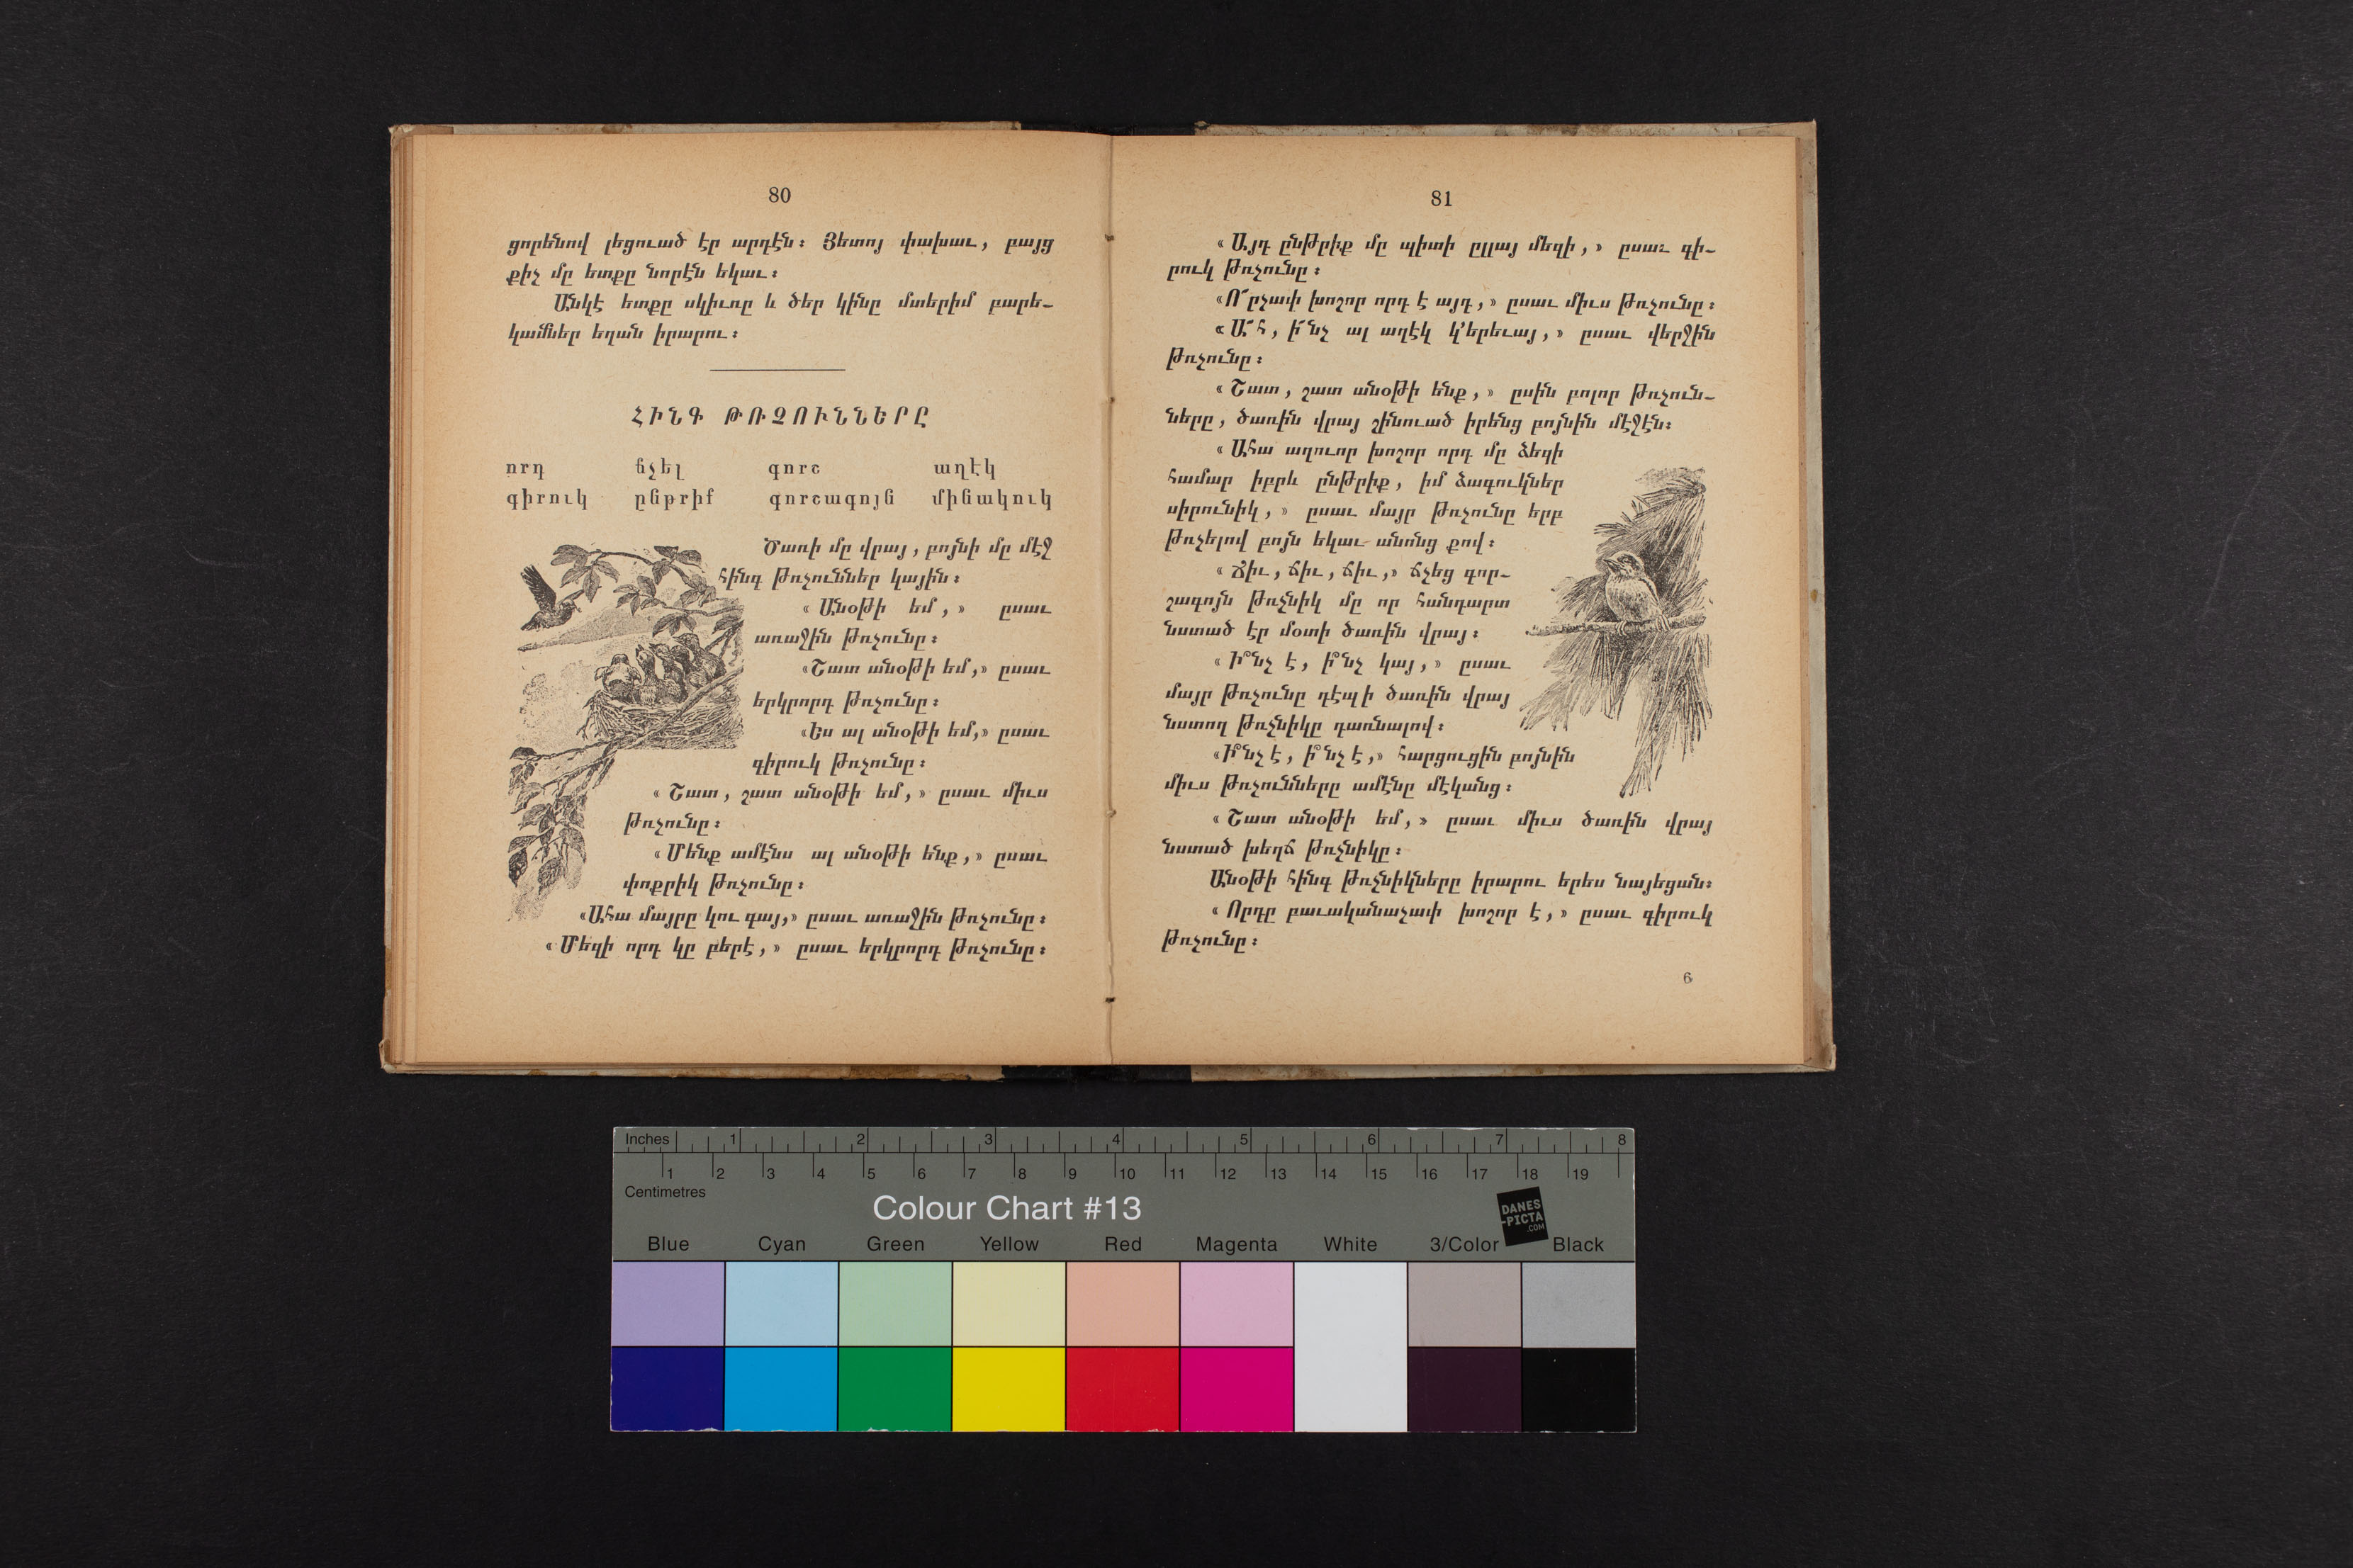 80
ցորենով լեցուած էր արդէն։ Յետոյ փախաւ, բայց
քիչ մը ետքը նորէն եկաւ։
Անկէ ետքը սկիւռը և ծեր կինը մտերիմ բարե-
կամներ եղան իրարու։
ՀԻՆԳ ԹՌՉՈՒՆՆԵՐԸ
որդ ճչել գորշ աղէկ
գիրուկ ընթրիք գորշագոյն մինակուկ
Ծառի մը վրայ, բոյնի մը մէջ
հինգ թռչուններ կային։
« Անօթի եմ, » ըսաւ
առաջին թռչունը։
«Շատ անօթի եմ,» ըսաւ
երկրորդ թռչունը։
«Ես ալ անօթի եմ,» ըսաւ
գիրուկ թռչունը։
« Շատ, շատ անօթի եմ, » ըսաւ միւս
թռչունը։
« Մենք ամէնս ալ անօթի ենք, » ըսաւ
փոքրիկ թռչունը։
«Ահա մայրը կու գայ,» ըսաւ առաջին թռչունը։
« Մեզի որդ կը բերէ, » ըսաւ երկրորդ թռչունը։
81
« Այդ ընթրիք մը պիտի ըլլայ մեզի, » ըսաւ գի-
րուկ թռչունը։
«Ո՜րչափ խոշոր որդ է այդ, » ըսաւ միւս թռչունը։
« Ա՜հ, ի՜նչ ալ աղէկ կ՚երեւայ, » ըսաւ վերջին
թռչունը։
« Շատ, շատ անօթի ենք, » ըսին բոլոր թռչուն-
ները, ծառին վրայ շինուած իրենց բոյնին մէջէն։
« Ահա աղուոր խոշոր որդ մը ձեզի
համար իբրև ընթրիք, իմ ձագուկներ
սիրունիկ, » ըսաւ մայր թռչունը երբ
թռչելով բոյն եկաւ անոնց քով։
« Ճիւ, ճիւ, ճիւ,» ճչեց գոր-
շագոյն թռչնիկ մը որ հանդարտ
նստած էր մօտի ծառին վրայ։
« Ի՞նչ է, ի՞նչ կայ, » ըսաւ
մայր թռչունը դէպ ի ծառին վրայ
նստող թռչնիկը դառնալով։
«Ի՞նչ է, ի՞նչ է,» հարցուցին բոյնին
միւս թռչունները ամէնը մէկանց։
« Շատ անօթի եմ, » ըսաւ միւս ծառին վրայ
նստած խեղճ թռչնիկը։
Անօթի հինգ թռչնիկները իրարու երես նայեցան։
« Որդը բաւականաչափ խոշոր է, » ըսաւ գիրուկ
թռչունը։
6
Inches 1 2 3 4 5 6 7 8
1 2 3 4 5 6 7 8 9 10 11 12 13 14 15 16 17 18 19
Centimetres
Colour Chart #13
DANES
-PICTA
.COM
Blue Cyan Green Yellow Red Magenta White 3/Color Black